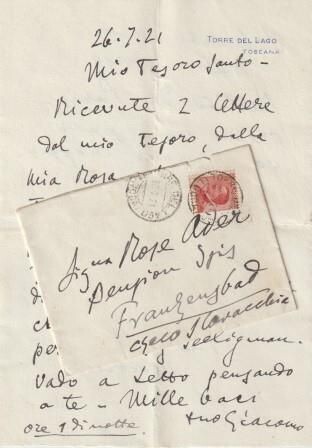 TORRE DEL LAGO
TOSCANA
26.7.21
Mio Tesoro Santo -
Ricevute 2 lettere
dal mio Tesoro, dalla
mia Rosa
Sig.na Rose Ader
Pension Spis
Franzensbad
Czeco Slovacchia
Seeligman.
Vado a letto pensando
a te - Mille baci
ore 1 di notte. tuo Giacomo